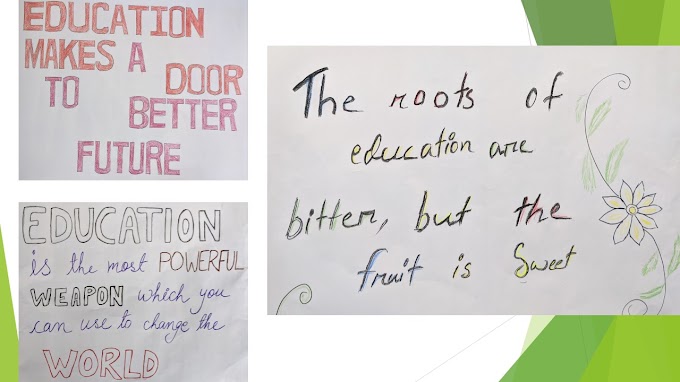 EDUCATION
MAKES A
DOOR
TO
BETTER
FUTURE
EDUCATION
is the most POWERFUL
WEAPON which you
can use to change the
WORLD
The roots of
education are
bitter, but the
fruit is Sweet